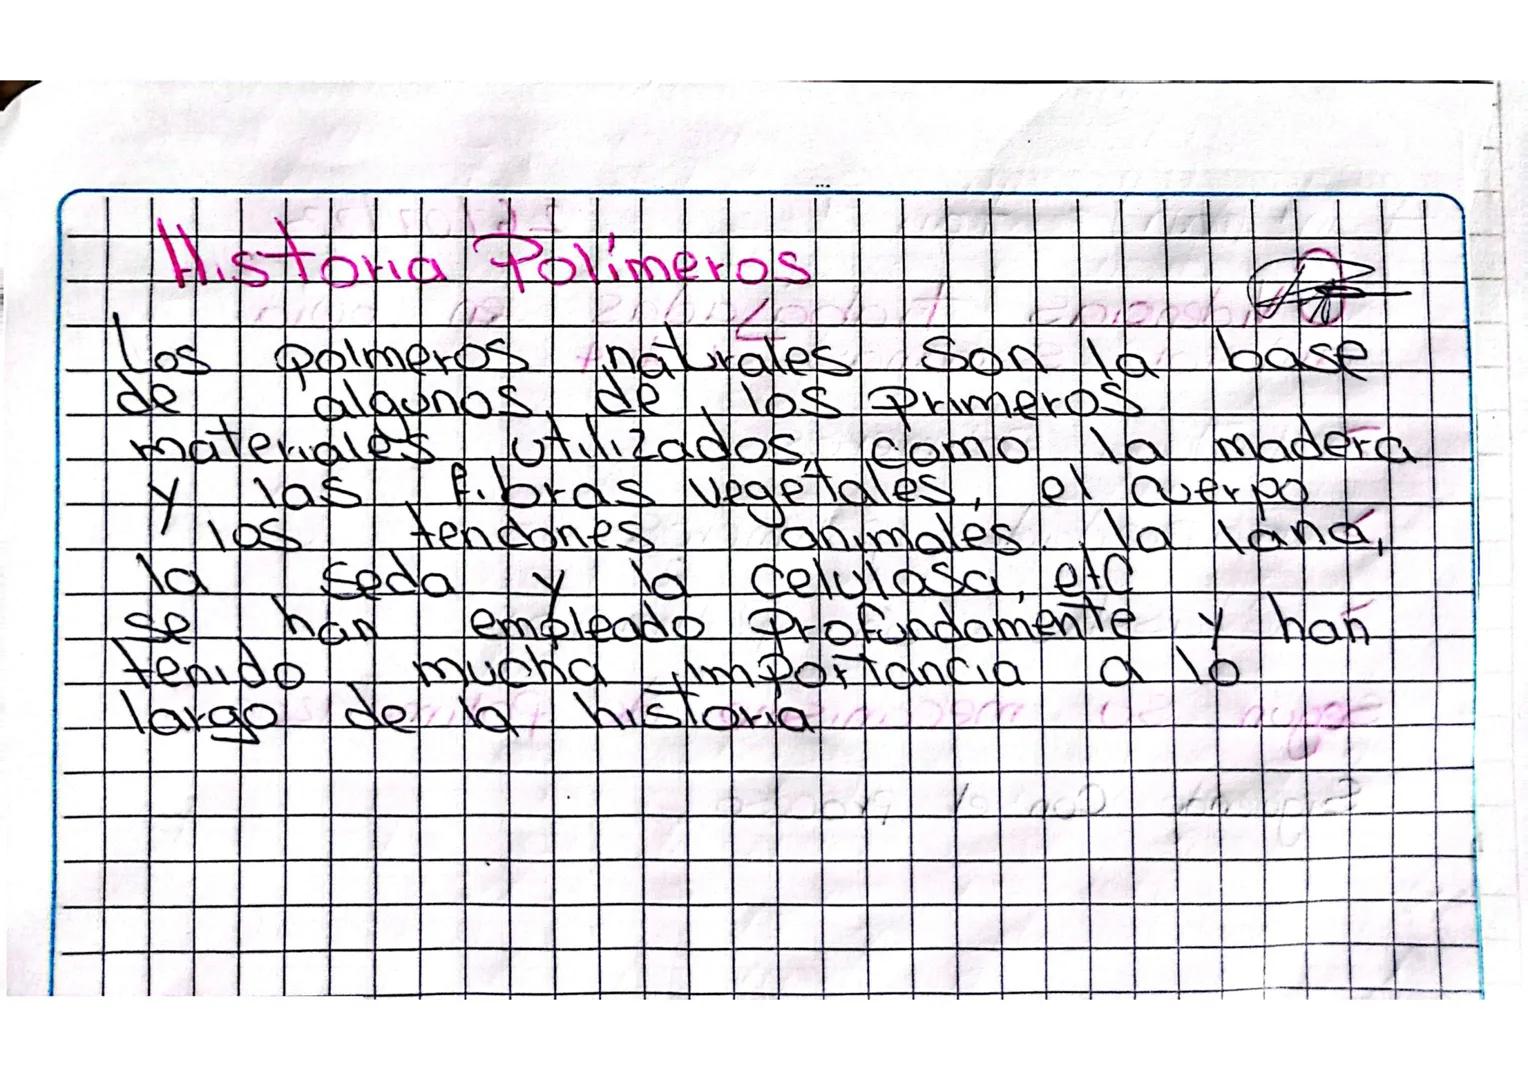 Historia Polímeros
Los polmeros naturales son la base
de algunos de los primeros
materiales utilizados, como la madera
y las fibras vegetales, el cuerpo
y los tendones animales. la lana,
la seda y la celulosa, etc
se han empleado profundamente y han
tenido mucha importancia a lo
largo de la historia